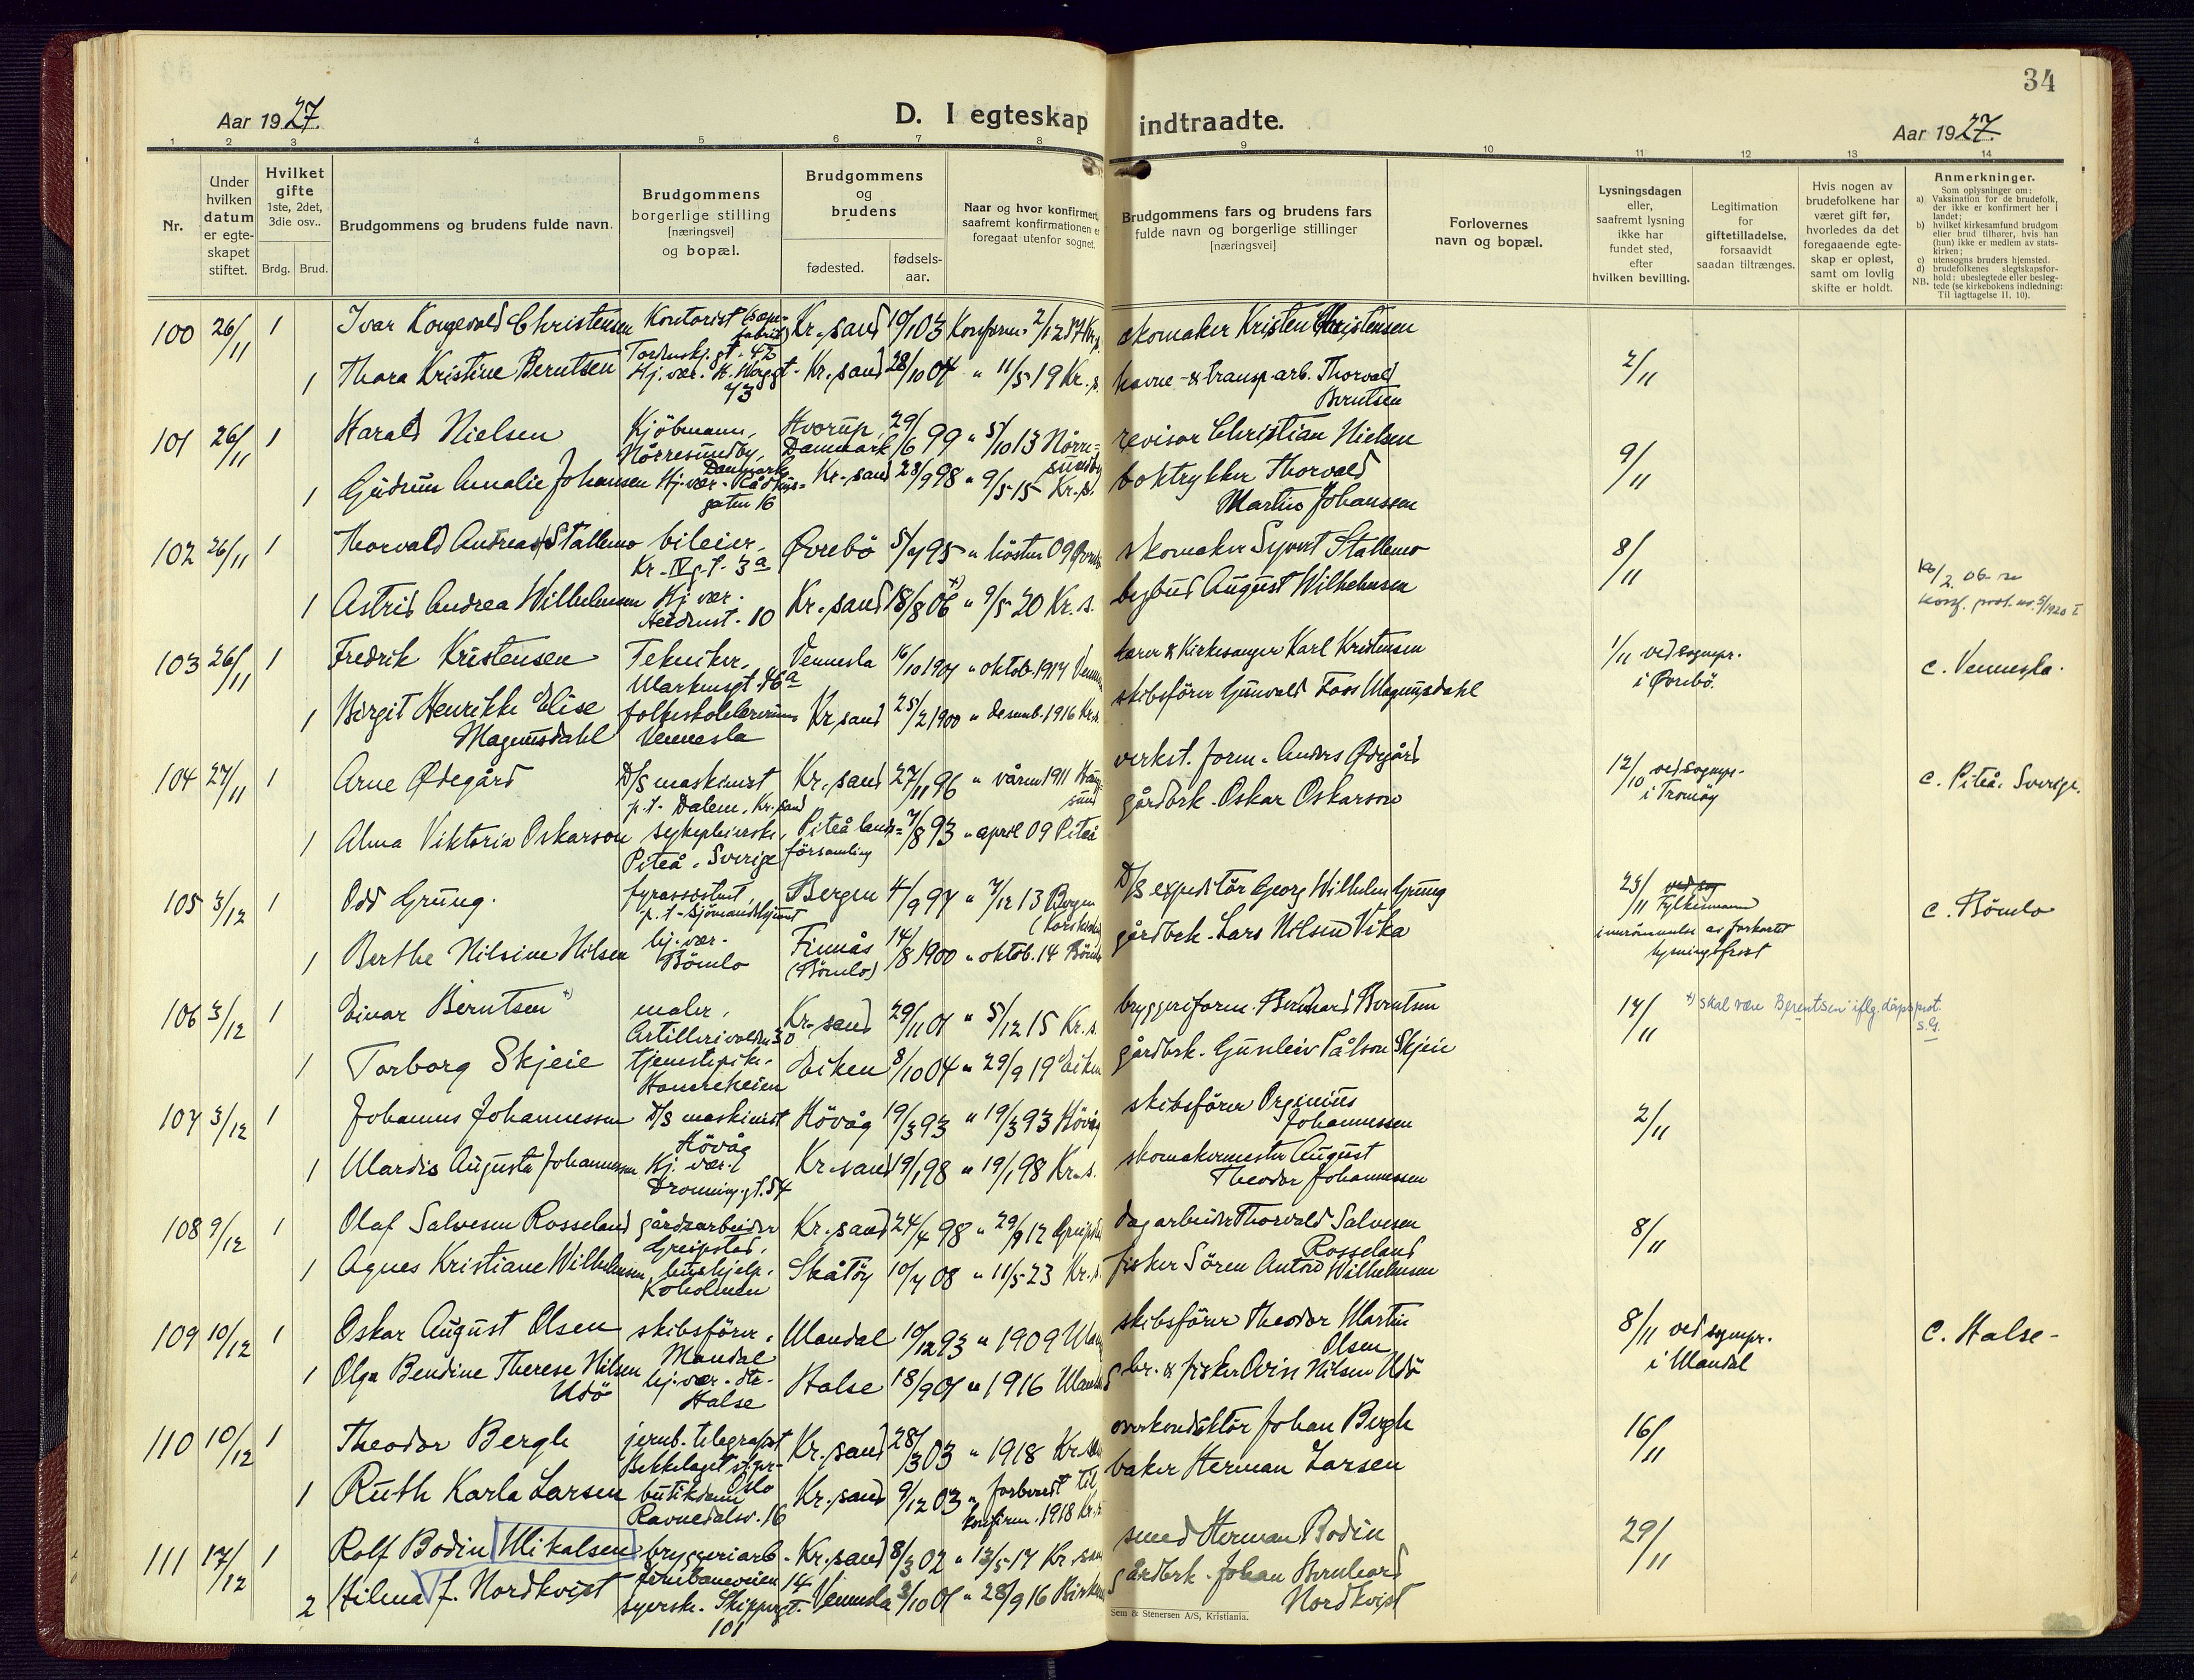 34
Aar 1927.
D. I egteskap indtraadte.
Aar 1927.
1 2 3 4 5 6 7 8 9 10 11 12 13 14
Nr.
Under hvilken datum er egteskapet stiftet.
Hvilket gifte 1ste, 2det, 3die osv..
Brdg. Brud.
Brudgommens og brudens fulde navn.
Brudgommens borgerlige stilling [næringsvei] og bopæl.
Brudgommens og brudens
fødested.
fødselsaar.
Naar og hvor konfirmert, saafremt konfirmationen er foregaat utenfor sognet.
Brudgommens fars og brudens fars fulde navn og borgerlige stillinger [næringsvei]
Forlovernes navn og bopæl.
Lysningsdagen eller, saafremt lysning ikke har fundet sted, efter hvilken bevilling.
Legitimation for giftetilladelse, forsaavidt saadan tiltrænges.
Hvis nogen av brudefolkene har været gift før, hvorledes da det foregaaende egteskap er opløst, samt om lovlig skifte er holdt.
Anmerkninger.
Som oplysninger om:
a) Vaksination for de brudefolk, der ikke er konfirmert her i landet;
b) hvilket kirkesamfund brudgom eller brud tilhører, hvis han (hun) ikke er medlem av statskirken;
c) utensogns bruders hjemsted.
d) brudefolkenes slegtskapsforhold: ubeslegtede eller beslegtede (se kirkebokens indledning:
NB. Til Iagttagelse II. 10).
100 26/11 1 Ivar Kongevold Christensen Kontorist Kr.sand 19/1 03 Konfirm. 2/12 17 Kr.s. skomaker Kristen Christensen
Tordenskj.gt. 42
1 Thora Kristine Berntsen Hj.vær. Kr.sand 28/10 04 " 11/5 19 Kr.s. havne- & transp.arb. Thorvald Berntsen 2/11
101 26/11 1 Harald Nielsen Kjöbmann, Nörresundby, Danmark Hvorup, Danmark 29/6 99 " 5/10 13 Nörresundby revisor Christian Nielsen
1 Gudrun Amalie Johansen Hj.vær. Rådhusgaten 16 Kr.sand 28/9 98 " 9/5 15 Kr.s. boktrykker Thorvald Martin Johanssen 9/11
102 26/11 1 Thorvald Andreas Stallemo bileier, Kr. IV g.t. 3a Øvrebö 5/7 95 " hösten 09 skomaker Syvert Stallemo 8/11
1 Astrid Andrea Wilhelmsen Hj.vær. 10 Kr.sand 18/8 06 +) " 9/5 20 Kr.s. bybud August Wilhelmsen
103 26/11 1 Fredrik Kristensen Tekniker, Markensgt. 46a Vennesla 16/10 1904 " oktob. 1917 lærer & Kirkesanger Karl Kristensen 1/11 ved sognepr. i Øvrebö. c. Vennesla.
1 Birgit Henrikke Elise Magnusdahl folkeskolelærerinne Vennesla Kr.sand 25/2 1900 " desemb. 1916 Kr.s. skibsförer Gunvald Foss Magnusdahl
104 27/11 1 Arne Ødegård D/S maskinist p.t. Dalem, Kr.sand Kr.sand 27/11 96 " våren 1911 verkst.form. Anders Ødegård 12/10 ved sognepr. i Tromöy c. Piteå, Sverige.
1 Alma Viktoria Oskarson sykepleierske, Piteå, Sverige Piteå landsförsamling 7/8 93 " april 09 Piteå gårdbrk. Oskar Oskarson
105 3/12 1 Odd Grung. fyrassistent, p.t. Sjömandshjemt Bergen 4/9 97 " 7/12 13 Bergen D/S expeditör Georg Wilhelm Grung 23/11 Fylkesmann c. Bömlo
1 Berthe Nilsine Nilsen hj.vær. Bömlo Finnås (Bömlo) 14/8 1900 " oktob. 14 Bömlo gårdbrk. Lars Nilsen Vika
106 3/12 1 Einar Berntsen +) maler, Artillerivollen 30 Kr.sand 29/11 01 " 5/12 15 Kr.s. bryggeriform. Bernhard Berntsen 14/11 +) skal være Berentsen iflg. dåpsprot. s.G.
1 Torborg Skjeie tjenestepike. Hannreheien Eiken 8/10 04 " 29/9 19 Eiken gårdbrk. Gunleiv Pålson Skjeie
107 3/12 1 Johannes Johannessen D/S maskinist Hövåg Hövåg 19/3 93 " 19/3 93 Hövåg skibsförer Orginius Johannessen 2/11
1 Mardis Augusta Johannessen Hj.vær. Dronning.gt. 54 Kr.sand 19/1 98 " 19/1 98 Kr.s. skomakermester August Theodor Johannessen
108 9/12 1 Olaf Salvesen Rosseland gårdsarbeider Greipstad, Kr.sand 24/4 98 " 29/9 12 dagarbeider Thorvald Salvesen Rosseland 8/11
1 Agnes Kristiane Wilhelmsen hushjelp. Koholmen Skåtöy 10/7 08 " 11/5 23 Kr.s. fisker Sören Anton Wilhelmsen
109 10/12 1 Oskar August Olsen skibsförer, Mandal Mandal 10/12 93 " 1909 skibsförer Theodor Martin Olsen 8/11 ved sognepr. i Mandal c. Halse
1 Olga Bendine Therese Nilsen Udö hj.vær. dtr. Halse Halse 18/9 01 " 1916 gbr. & fisker Nilsen Udö
110 10/12 1 Theodor Bergh jernb. telegrafist Bekkelaget st. pr. Oslo Kr.sand 28/3 03 " 1918 Kr.sand overkonduktör Johan Bergh 16/11
1 Ruth Karla Larsen butikdame Ravnedalsv. 16 Kr.sand 9/12 03 " forberedt til konfirm. 1918 Kr.s. baker Herman Larsen
111 17/12 1 Rolf Bodin Mikalsen bryggeriarb. 14 Kr.sand 8/3 02 " 13/5 17 Kr.sand smed Herman Bodin 29/11
2 Hilma J. Nordkvist syersk. Skippergt. 101 Vennesla 3/10 01 " 28/9 16 gårdbrk. Johan Bernhard Nordkvist
Sem & Stenersen A/S, Kristiania.